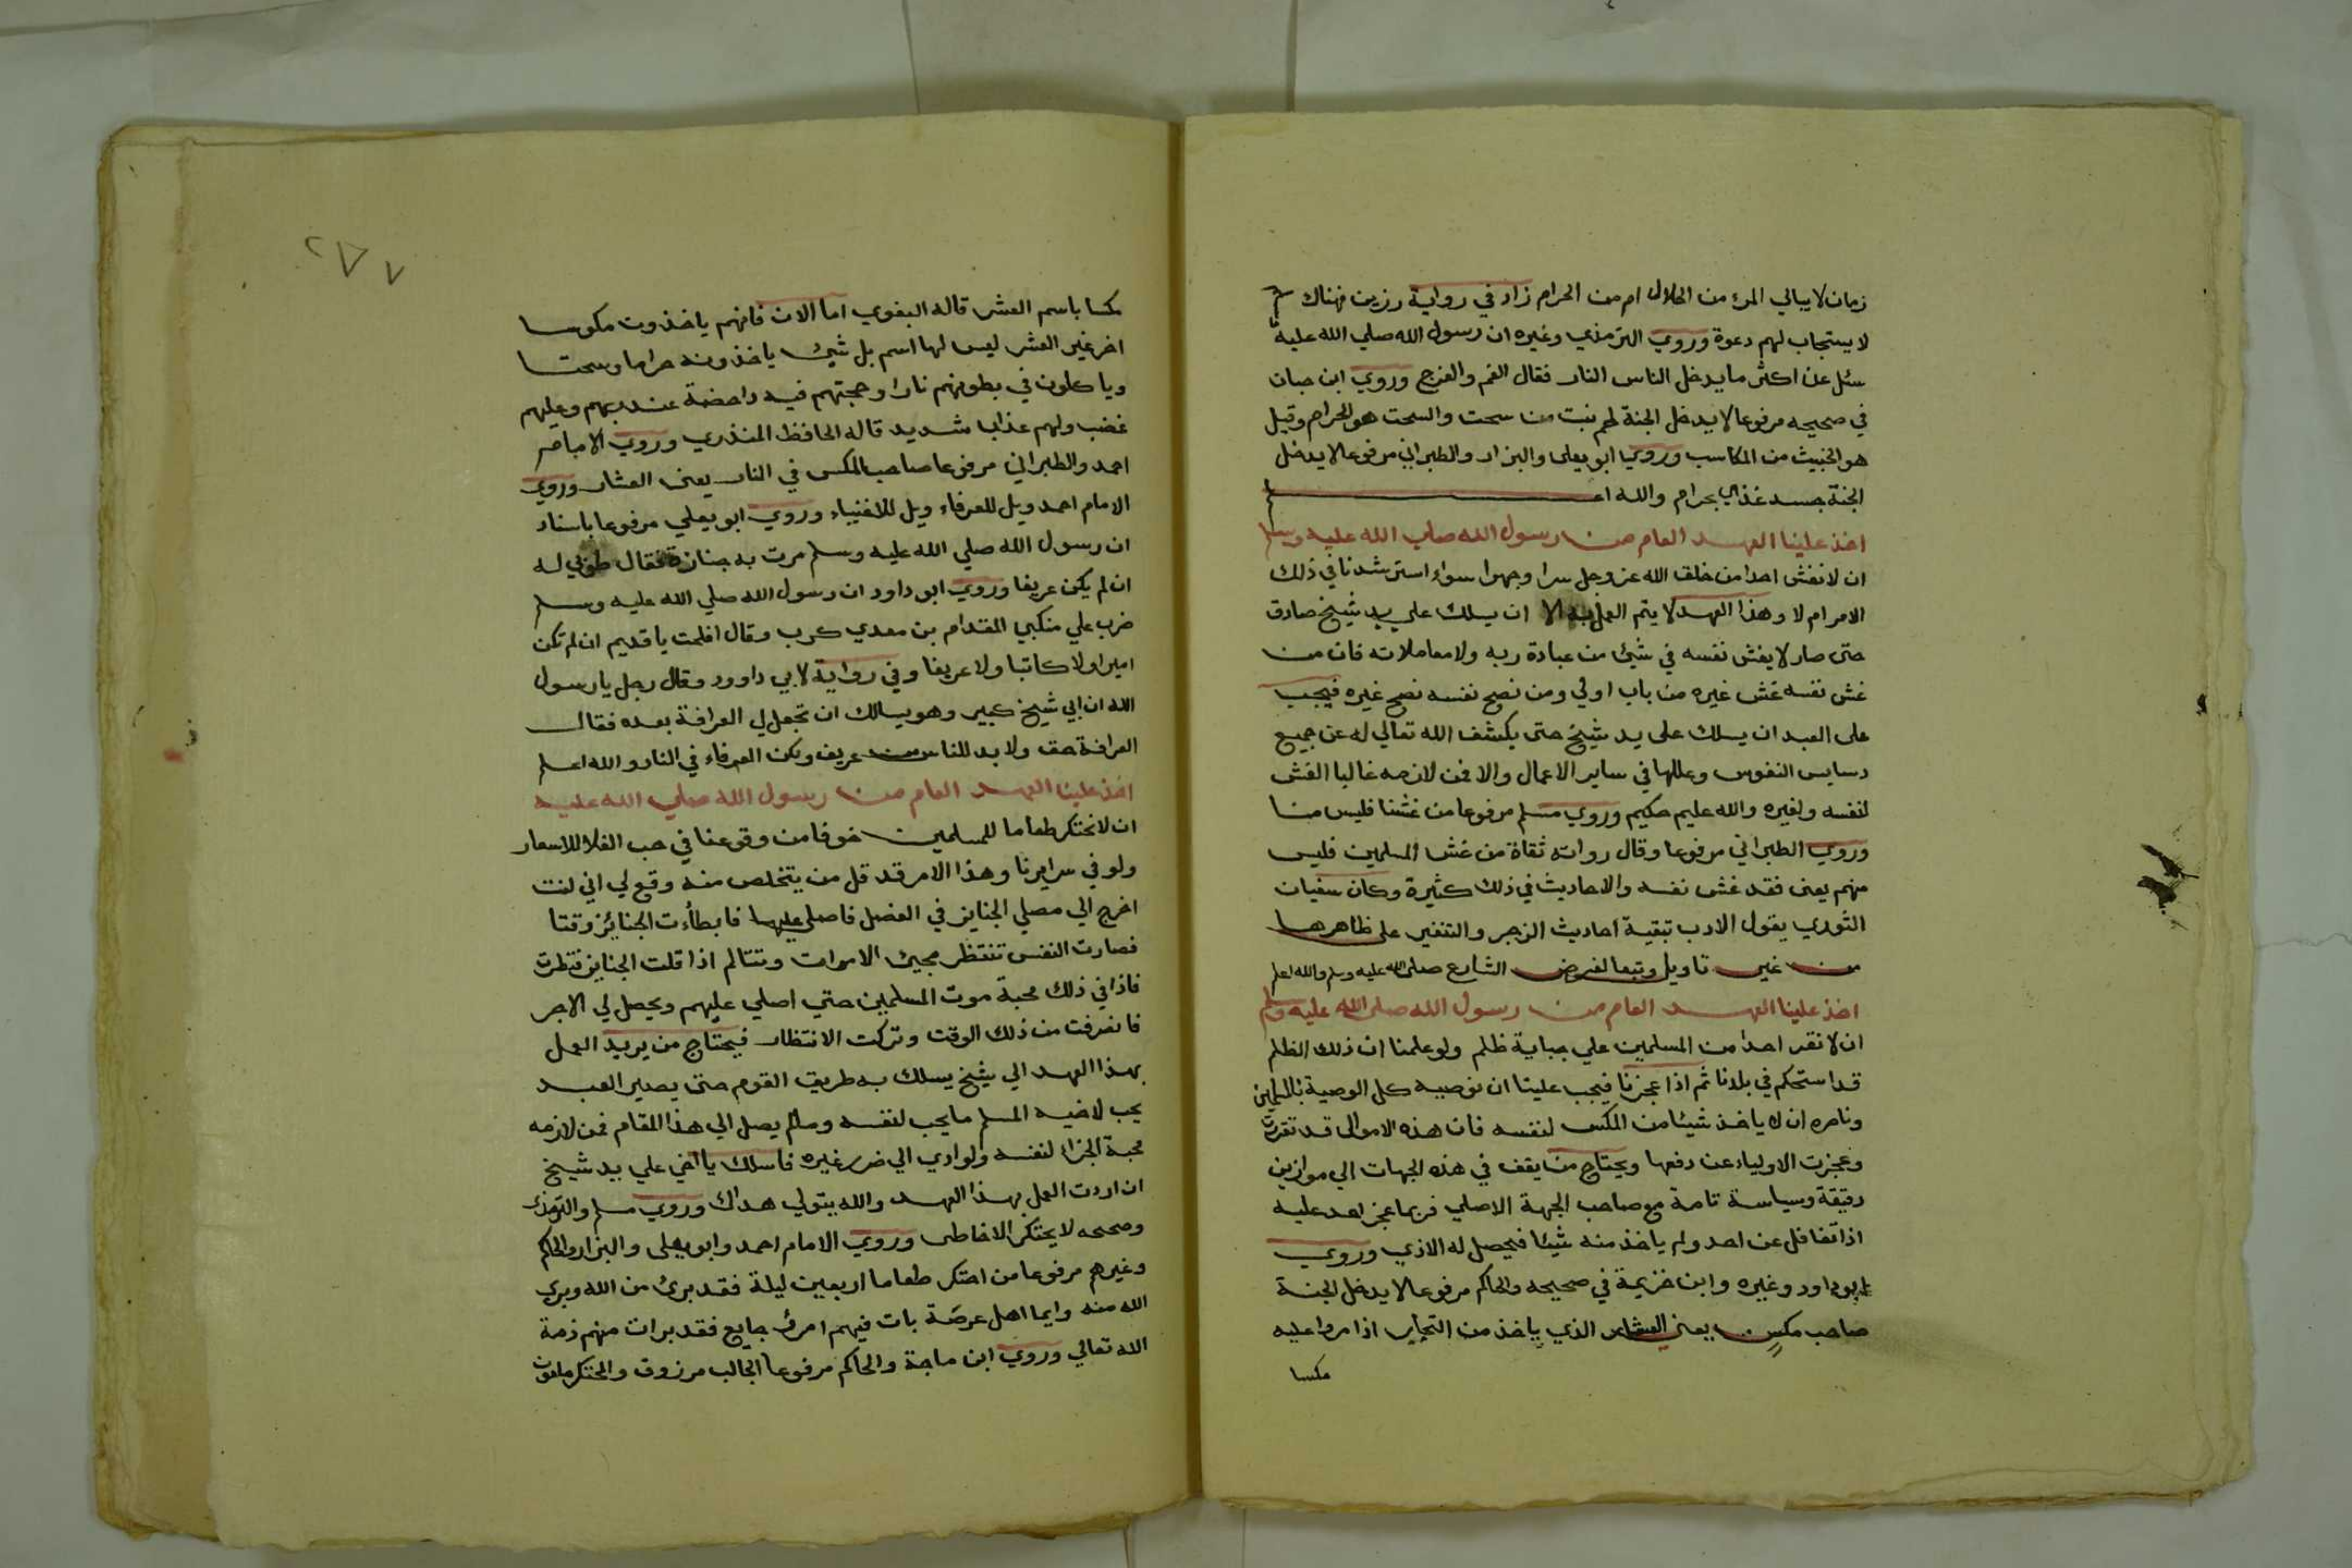 زمان لا يبالي المرء من الحلال ام من الحرام زاد في رواية رزين فهناك
لا يستجاب لهم دعوة وروي الترمذي وغيره ان رسول الله صلي الله عليه
سئل عن اكثر ما يدخل الناس النار فقال الفم والفرج وروي ابن حبان
في صحيحه مرفوعا لا يدخل الجنة لحم نبت من سحت والسحت هو الحرام وقيل
هو الخبيث من المكاسب وروي ابو يعلى والبزار والطبراني مرفوعا لا يدخل
الجنة جسد غذي بحرام والله اعلم
اخذ علينا العهد العام من رسول الله صلى الله عليه وسلم
ان لا نغش احدا من خلق الله عز وجل سرا وجهرا سواء استرشدنا في ذلك
الامر ام لا وهذا العهد لا يتم العمل به الا ان يسلك على يد شيخ صادق
حتى صار لا يغش نفسه في شيئ من عبادة ربه ولا معاملاته فان من
غش نفسه غش غيره من باب اولي ومن نصح نفسه نصح غيره فيجب
على العبد ان يسلك على يد شيخ حتى يكشف الله تعالي له عن جميع
دسايس النفوس وعللها في ساير الاعمال والا فمن لازمه غالبا الغش
لنفسه ولغيره والله عليم حكيم وروي مسلم مرفوعا من غشنا فليس منا
وروي الطبراني مرفوعا وقال رواته ثقاة من غش المسلمين فليس
منهم يعنى فقد غش نفسه والاحاديث في ذلك كثيرة وكان سفيان
الثوري يقول الادب تبقية احاديث الزجر والتنفير على ظاهرها
من غير تاويل وتبعا لغرض الشارع صلى الله عليه وسلم والله اعلم
اخذ علينا العهد العام من رسول الله صلى الله عليه وسلم
ان لا نقر احدا من المسلمين علي جباية ظلم ولو علمنا ان ذلك الظلم
قد استحكم في بلادنا ثم اذا عجزنا فيجب علينا ان نوصيه كل الوصية بالمسلمين
ونامره ان لا ياخذ شيئا من المكس لنفسه فان هذه الاموال قد تقررت
وعجزت الاولياء عن دفعها ويحتاج من يقف في هذه الجهات الي موازين
دقيقة وسياسة تامة مع صاحب الجهة الاصلي فربما عجز احد عليه
اذا تغافل عن احد ولم ياخذ منه شيئا فيحصل له الاذي وروي
ابو داود وغيره وابن خزيمة في صحيحه والحاكم مرفوعا لا يدخل الجنة
صاحب مكس يعني العشار الذي ياخذ من التجار اذا مروا عليه
مكسا
٢٧٧
مكسا باسم العشر قاله البغوي اما الان فانهم ياخذون مكوسا
اخر غير العشر ليس لها اسم بل شيئ ياخذونه حراما وسحتا
وياكلون في بطونهم نارا وحجتهم فيه داحضة عند ربهم وعليهم
غضب ولهم عذاب شديد قاله الحافظ المنذري وروي الامام
احمد والطبراني مرفوعا صاحب المكس في النار يعنى العشار وروي
الامام احمد ويل للعرفاء ويل للاغنياء وروي ابو يعلي مرفوعا باسناد
ان رسول الله صلي الله عليه وسلم مرت به جنازة فقال طوبي له
ان لم يكن عريفا وروي ابو داود ان رسول الله صلي الله عليه وسلم
ضرب علي منكبي المقدام بن معدي كرب وقال افلحت يا قديم ان لم تكن
اميرا ولا كاتبا ولا عريفا وفي رواية لابي داوود وقال رجل يا رسول
الله ان ابي شيخ كبير وهو يسالك ان تجعل لي العرافة بعده فقال
العرافة حق ولا بد للناس من عريف ولكن العرفاء في النار والله اعلم
اخذ علينا العهد العام من رسول الله صلي الله عليه
ان لا نحتكر طعاما للمسلمين خوفا من وقوعنا في حب الغلا للاسعار
ولو في سرايرنا وهذا الامر قد قل من يتخلص منه وقع لي اني كنت
اخرج الي مصلي الجنايز في الفضل فاصلي عليها فابطاءت الجنائز وقتا
فصارت النفس تنتظر مجيئ الاموات وتتالم اذا قلت الجنايز فنظرت
فاذا في ذلك محبة موت المسلمين حتي اصلي عليهم ويحصل لي الاجر
فانصرفت من ذلك الوقت وتركت الانتظار فيحتاج من يريد العمل
بهذا العهد الي شيخ يسلك به طريق القوم حتى يصير العبد
يحب لاخيه المسلم ما يحب لنفسه وما لم يصل الي هذا المقام فمن لازمه
محبة الجزاء لنفسه ولو ادي الي ضرر غيره فاسلك يا اخي علي يد شيخ
ان اردت العمل بهذا العهد والله يتولي هداك وروي مسلم والترمذي
وصححه لا يحتكر الا خاطى وروي الامام احمد وابو يعلى والبزار والحاكم
وغيرهم مرفوعا من احتكر طعاما اربعين ليلة فقد برئ من الله وبري
الله منه وايما اهل عرصة بات فيهم امرئ جايع فقد برات منهم ذمة
الله تعالي وروي ابن ماجة والحاكم مرفوعا الجالب مرزوق والمحتكر ملعون